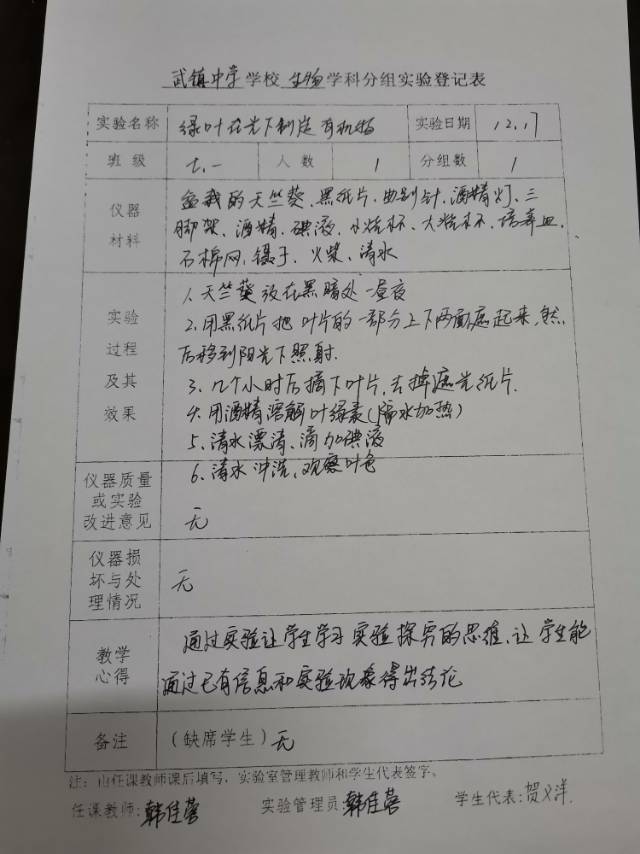 武镇中学学校生物学科分组实验登记表
实验名称 绿叶在光下制造有机物 实验日期 12.17
班级 七.一 人数 1 分组数 1
仪器材料
盆栽的天竺葵、黑纸片、曲别针、酒精灯、三
脚架、酒精、碘液、小烧杯、大烧杯、培养皿、
石棉网、镊子、火柴、清水
实验过程及其效果
1、天竺葵放在黑暗处一昼夜
2、用黑纸片把叶片的一部分上下两面遮起来,然
后移到阳光下照射.
3、几个小时后摘下叶片,去掉遮光纸片.
4、用酒精溶解叶绿素(隔水加热)
5、清水漂清、滴加碘液
6、清水冲洗、观察叶色
仪器质量或实验改进意见 无
仪器损坏与处理情况 无
教学心得
通过实验让学生学习实验探究的思维、让学生能
通过已有信息和实验现象得出结论
备注 (缺席学生)无
注:由任课教师课后填写,实验室管理教师和学生代表签字。
任课教师:韩佳蓉 实验管理员:韩佳蓉 学生代表:贺义洋.